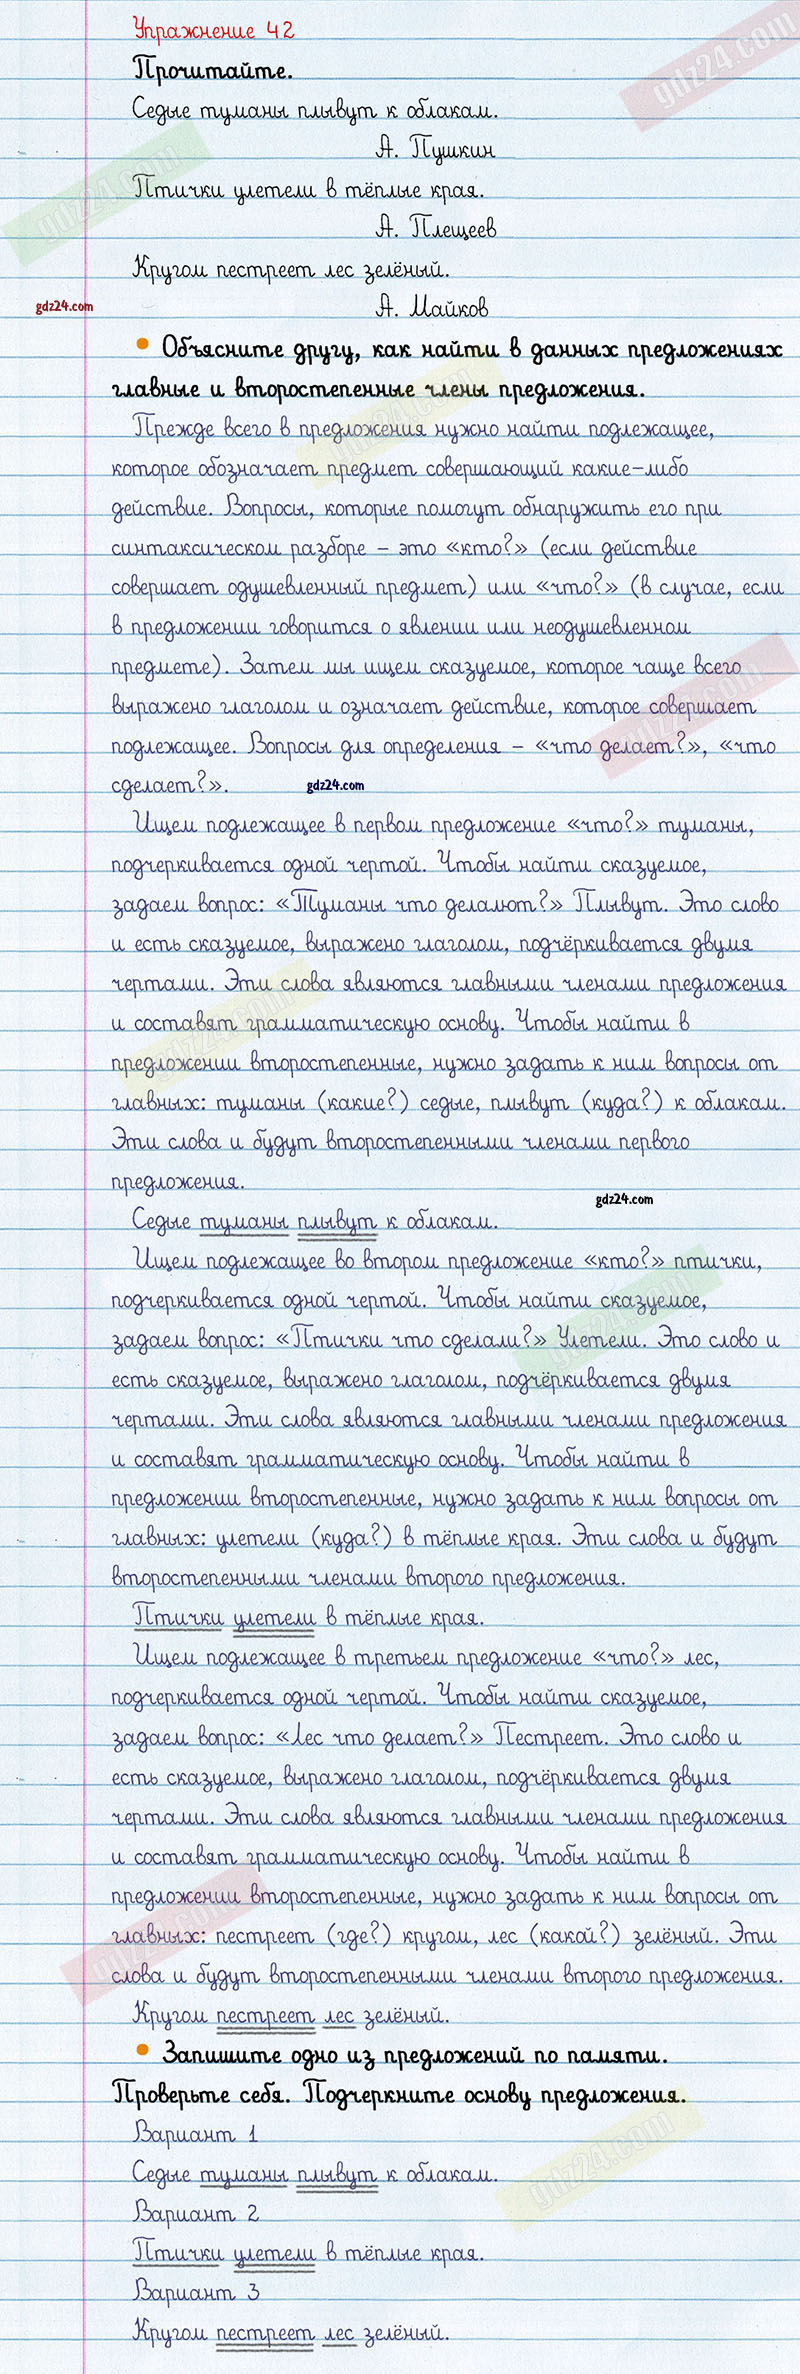 Упражнение 42
Прочитайте.
Седые туманы плывут к облакам.
А. Пушкин
Птички улетели в тёплые края.
А. Плещеев
Кругом пестреет лес зелёный.
gdz24.com
А. Майков
• Объясните другу, как найти в данных предложениях
главные и второстепенные члены предложения.
Прежде всего в предложения нужно найти подлежащее,
которое обозначает предмет совершающий какие-либо
действие. Вопросы, которые помогут обнаружить его при
синтаксическом разборе – это «кто?» (если действие
совершает одушевленный предмет) или «что?» (в случае, если
в предложении говорится о явлении или неодушевленном
предмете). Затем мы ищем сказуемое, которое чаще всего
выражено глаголом и означает действие, которое совершает
подлежащее. Вопросы для определения – «что делает?», «что
сделает?».
gdz24.com
Ищем подлежащее в первом предложение «что?» туманы,
подчеркивается одной чертой. Чтобы найти сказуемое,
задаем вопрос: «Туманы что делалют?» Плывут. Это слово
и есть сказуемое, выражено глаголом, подчёркивается двумя
чертами. Эти слова являются главными членами предложения
и составят грамматическую основу. Чтобы найти в
предложении второстепенные, нужно задать к ним вопросы от
главных: туманы (какие?) седые, плывут (куда?) к облакам.
Эти слова и будут второстепенными членами первого
предложения.
gdz24.com
Седые туманы плывут к облакам.
Ищем подлежащее во втором предложение «кто?» птички,
подчеркивается одной чертой. Чтобы найти сказуемое,
задаем вопрос: «Птички что сделали?» Улетели. Это слово и
есть сказуемое, выражено глаголом, подчёркивается двумя
чертами. Эти слова являются главными членами предложения
и составят грамматическую основу. Чтобы найти в
предложении второстепенные, нужно задать к ним вопросы от
главных: улетели (куда?) в тёплые края. Эти слова и будут
второстепенными членами второго предложения.
Птички улетели в тёплые края.
Ищем подлежащее в третьем предложение «что?» лес,
подчеркивается одной чертой. Чтобы найти сказуемое,
задаем вопрос: «Лес что делает?» Пестреет. Это слово и
есть сказуемое, выражено глаголом, подчёркивается двумя
чертами. Эти слова являются главными членами предложения
и составят грамматическую основу. Чтобы найти в
предложении второстепенные, нужно задать к ним вопросы от
главных: пестреет (где?) кругом, лес (какой?) зелёный. Эти
слова и будут второстепенными членами второго предложения.
Кругом пестреет лес зелёный.
• Запишите одно из предложений по памяти.
Проверьте себя. Подчеркните основу предложения.
Вариант 1
Седые туманы плывут к облакам.
Вариант 2
Птички улетели в тёплые края.
Вариант 3
Кругом пестреет лес зелёный.